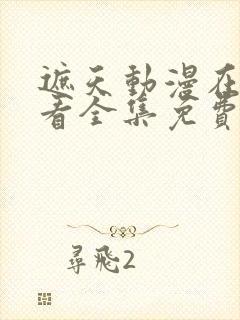 遮天動漫在
看全集免費
尋飛2